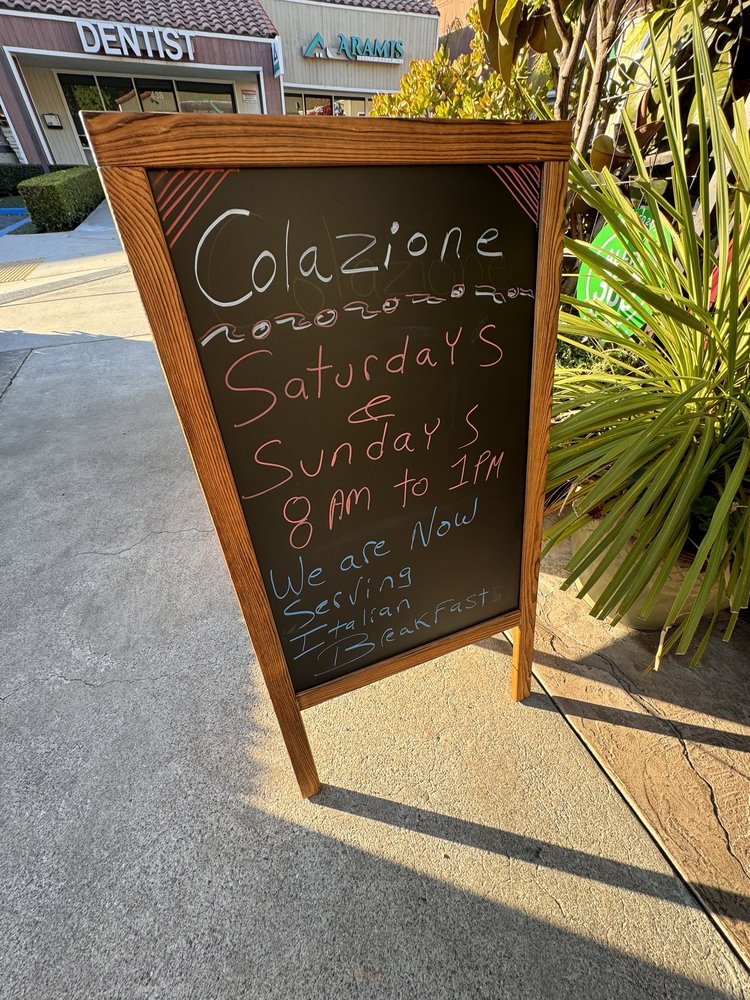 DENTIST
ARAMIS
Colazione
Saturdays
&
Sundays
8 AM to 1PM
We are Now
Serving
Italian
Breakfasts